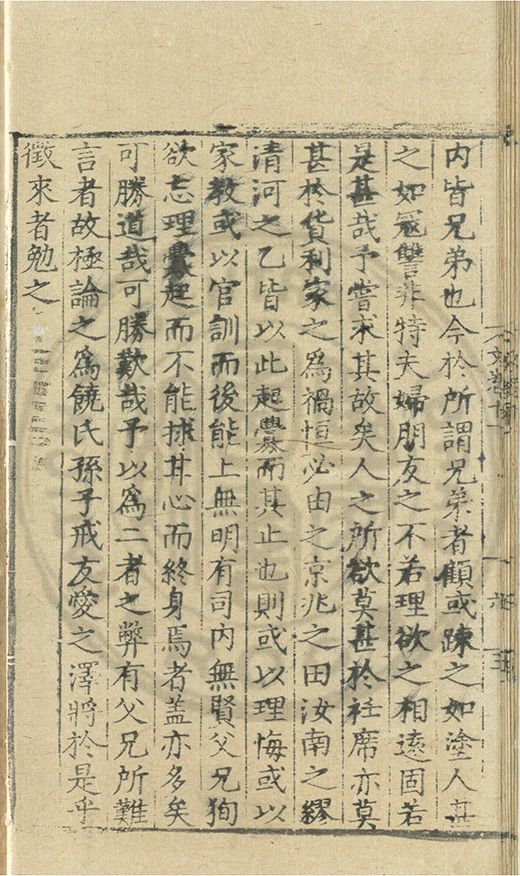 内皆兄弟也今於所謂兄弟者顧或踈之如塗人甚
之如寇讐非特夫婦朋友之不若理欲之相遠固若
是甚哉予嘗求其故矣人之所欲莫甚於衽席亦莫
甚於貨利家之為禍恒必由之京兆之田汝南之繆
清河之乙皆以此起釁而其止也則或以理悔或以
家教或以官訓而後能上無明有司内無賢父兄狥
欲忘理釁起而不能捄其心而終身焉者盖亦多矣
可勝道哉可勝歎哉予以為二者之弊有父兄所難
言者故極論之為饒氏孫子戒友愛之澤將於是乎
徵來者勉之